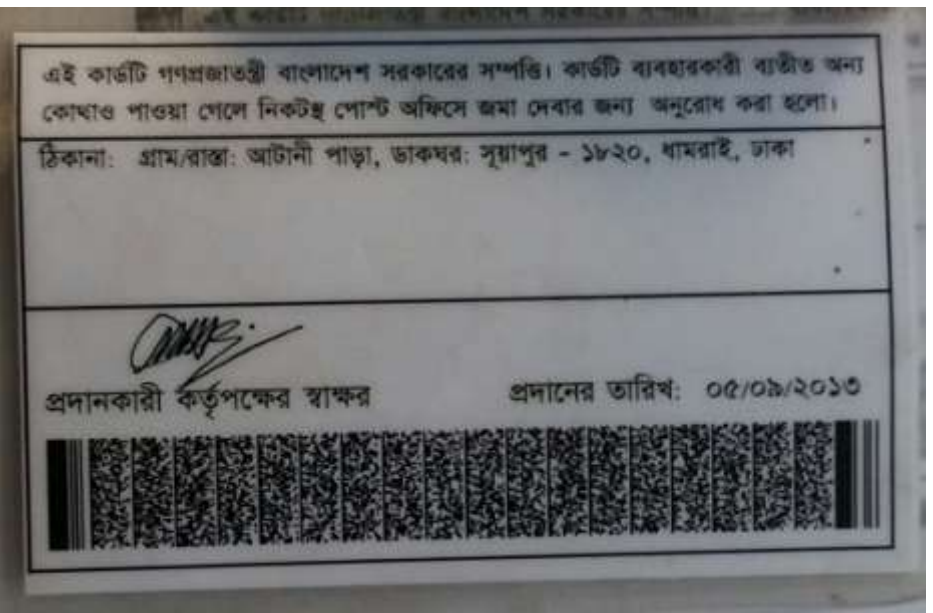 এই কার্ডটি গণপ্রজাতন্ত্রী বাংলাদেশ সরকারের সম্পত্তি। কার্ডটি ব্যবহারকারী ব্যতীত অন্য
কোথাও পাওয়া গেলে নিকটস্থ পোস্ট অফিসে জমা দেবার জন্য অনুরোধ করা হলো।
ঠিকানা: গ্রাম/রাস্তা: আটানী পাড়া, ডাকঘর: সূয়াপুর - ১৮২০, ধামরাই, ঢাকা
প্রদানকারী কর্তৃপক্ষের স্বাক্ষর প্রদানের তারিখ: ০৫/০৯/২০১৩